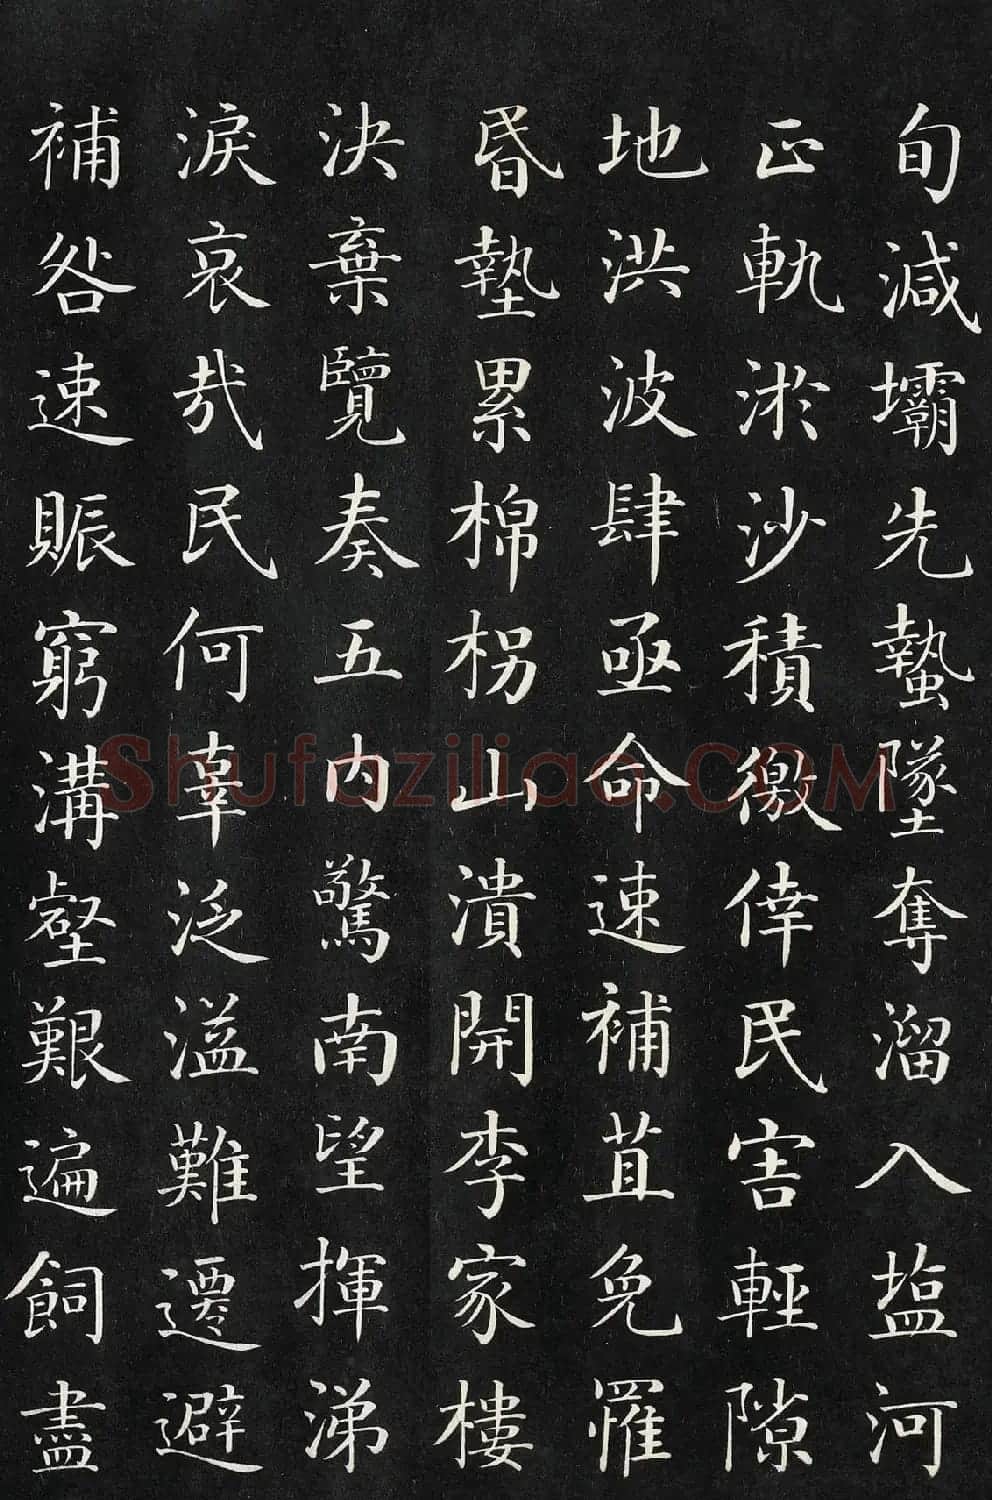 旬減壩先蟄墜奪溜入塩河
正軌淤沙積徼倖民害輕隙
地洪波肆亟命速補苴免罹
昏墊累棉柺山潰開李家樓
決棄覽奏五內驚南望揮涕
淚哀哉民何辜泛溢難遷避
補咎速賑窮溝壑艱遍飼盡
Shufaziliao.COM